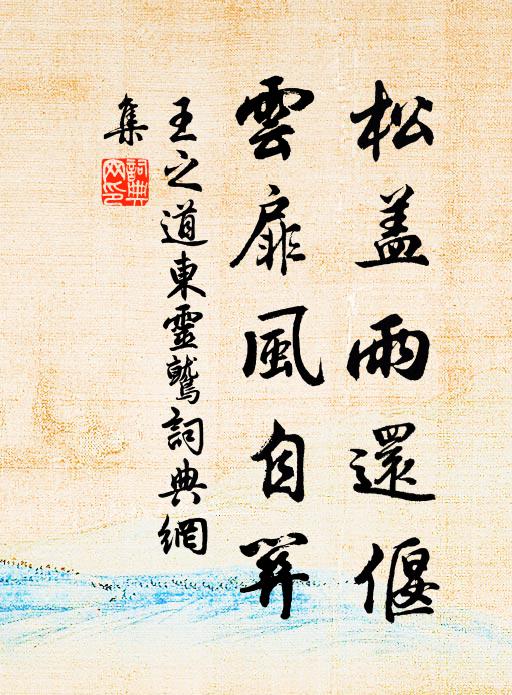 松盖雨還偃
雲扉風自開
王之道東靈鷲詞典網
集
詞典
网印